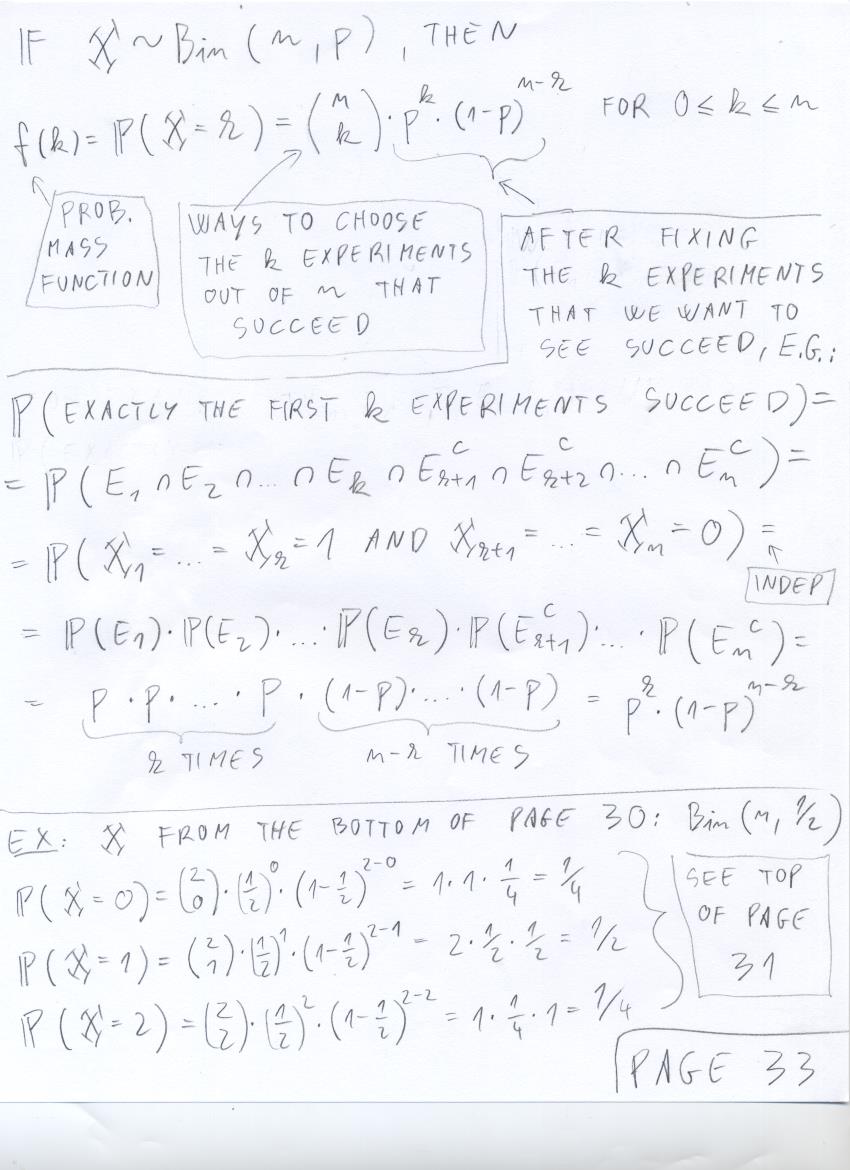 IF X ~ Bin (n, p), THEN
f(k) = ℙ(X = k) = (n k) · p^k · (1-p)^{n-k} FOR 0 ≤ k ≤ n
PROB.
MASS
FUNCTION
WAYS TO CHOOSE
THE k EXPERIMENTS
OUT OF n THAT
SUCCEED
AFTER FIXING
THE k EXPERIMENTS
THAT WE WANT TO
SEE SUCCEED, E.G.:
ℙ(EXACTLY THE FIRST k EXPERIMENTS SUCCEED) =
= ℙ(E_1 ∩ E_2 ∩ ... ∩ E_k ∩ E_{k+1}^C ∩ E_{k+2}^C ∩ ... ∩ E_n^C) =
= ℙ(X_1 = ... = X_k = 1 AND X_{k+1} = ... = X_n = 0) =
INDEP
= ℙ(E_1) · ℙ(E_2) · ... · ℙ(E_k) · ℙ(E_{k+1}^C) · ... · ℙ(E_n^C) =
= p · p · ... · p · (1-p) · ... · (1-p) = p^k · (1-p)^{n-k}
k TIMES n-k TIMES
EX: X FROM THE BOTTOM OF PAGE 30: Bin (n, 1/2)
ℙ(X = 0) = (2 0) · (1/2)^0 · (1-1/2)^{2-0} = 1 · 1 · 1/4 = 1/4
ℙ(X = 1) = (2 1) · (1/2)^1 · (1-1/2)^{2-1} = 2 · 1/2 · 1/2 = 1/2
ℙ(X = 2) = (2 2) · (1/2)^2 · (1-1/2)^{2-2} = 1 · 1/4 · 1 = 1/4
SEE TOP
OF PAGE
31
PAGE 33